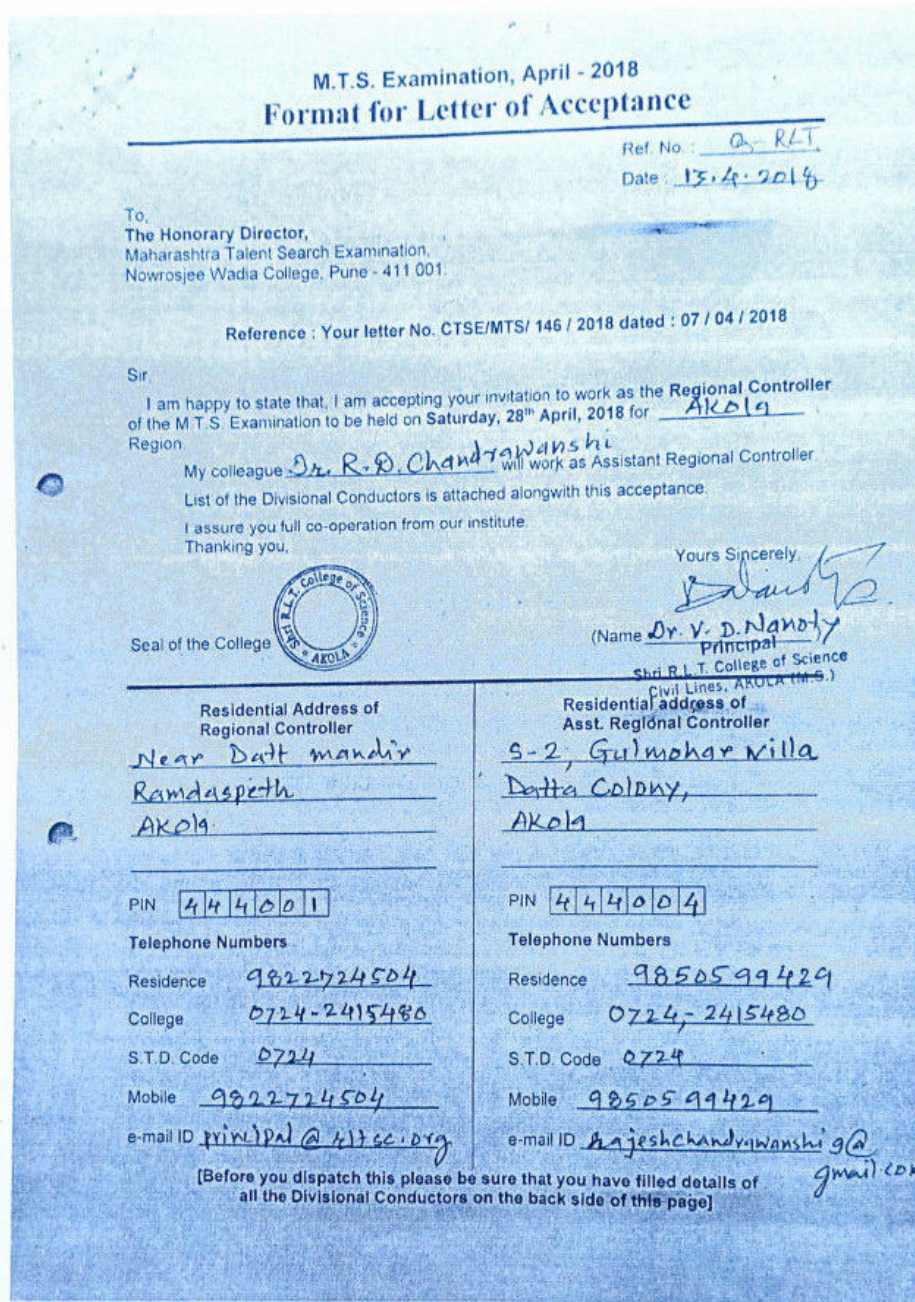 M.T.S. Examination, April - 2018
Format for Letter of Acceptance
Ref. No. : RLT
Date : 13.4.2018
To,
The Honorary Director,
Maharashtra Talent Search Examination,
Nowrosjee Wadia College, Pune - 411 001.
Reference : Your letter No. CTSE/MTS/ 146 / 2018 dated : 07 / 04 / 2018
Sir,
I am happy to state that, I am accepting your invitation to work as the Regional Controller
of the M.T.S. Examination to be held on Saturday, 28th April, 2018 for Akola
Region.
My colleague Dr. R. D. Chandrawanshi will work as Assistant Regional Controller
List of the Divisional Conductors is attached alongwith this acceptance.
I assure you full co-operation from our institute.
Thanking you,
Yours Sincerely,
Seal of the College
Shri R.L.T. College of Science
AKOLA
(Name Dr. V. D. Nanoty
Principal
Shri R.L.T. College of Science
Civil Lines, AKOLA (M.S.)
Residential Address of
Regional Controller
Near Datt mandir
Ramdaspeth
Akola.
PIN 444001
Telephone Numbers
Residence 9822724504
College 0724-2415480
S.T.D. Code 0724
Mobile 9822724504
e-mail ID principal@rltsc.org
Residential address of
Asst. Regional Controller
S-2, Gulmohar Villa
Datta Colony,
Akola
PIN 444004
Telephone Numbers
Residence 9850599429
College 0724-2415480
S.T.D. Code 0724
Mobile 9850599429
e-mail ID rajeshchandrawanshi9@
gmail.com
[Before you dispatch this please be sure that you have filled details of
all the Divisional Conductors on the back side of this page]